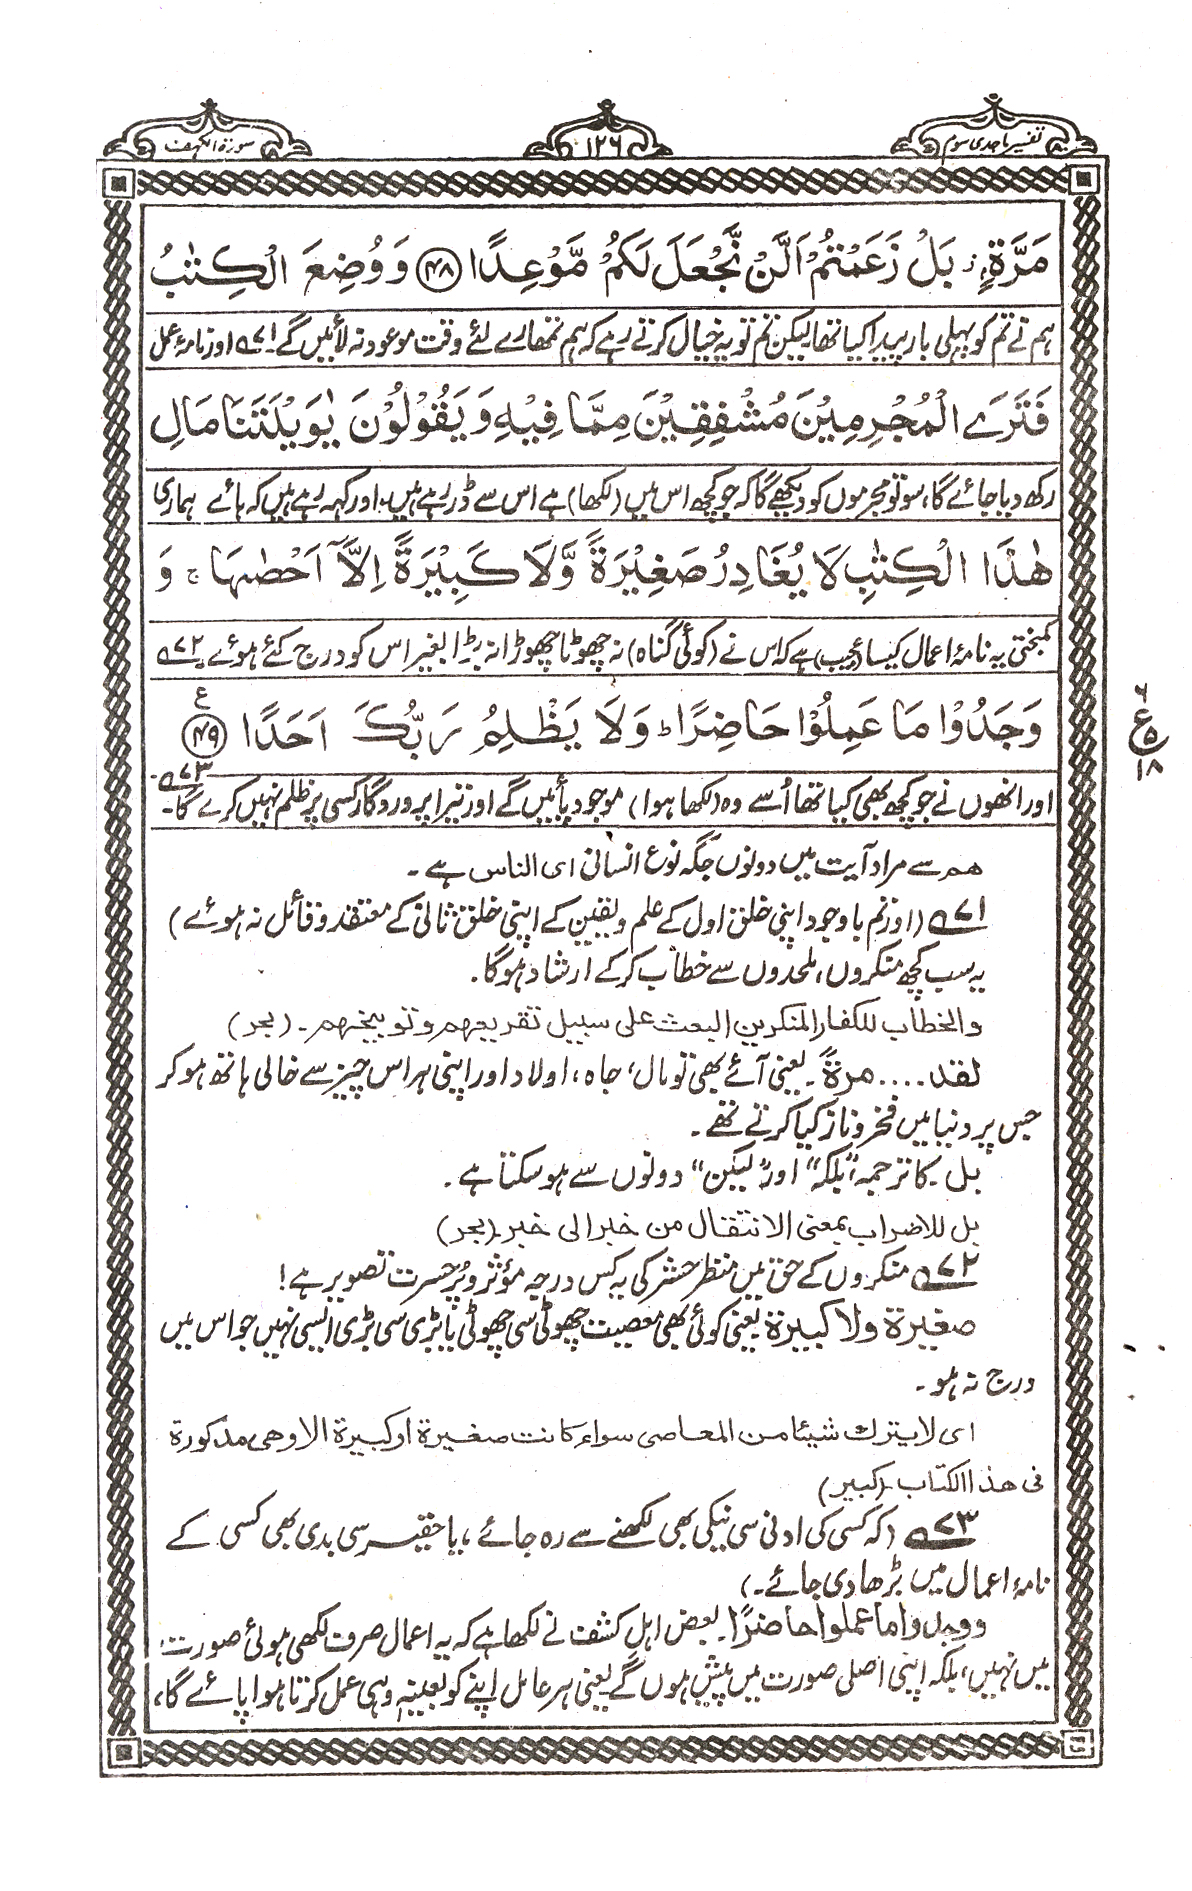 تفسیر ماجدی سوم
۱۲۶
سورۃ الکہف
مَرَّةٍ ۭ ز بَلْ زَعَمْتُمْ اَلَّنْ نَّجْعَلَ لَكُمْ مَّوْعِدًا ﴿۴۸﴾ وَ وُضِعَ الْكِتٰبُ
ہم نے تم کو پہلی بار پیدا کیا تھا لیکن تم تو یہ خیال کرتے رہے کہ ہم تمھارے لئے وقت موعود نہ لائیں گے ۷۱؎ اور نامۂ عمل
فَتَرَى الْمُجْرِمِيْنَ مُشْفِقِيْنَ مِمَّا فِيْهِ وَ يَقُوْلُوْنَ يٰوَيْلَتَنَا مَالِ
رکھ دیا جائے گا، سو تو مجرموں کو دیکھے گا کہ جو کچھ اس میں (لکھا) ہے اس سے ڈر رہے ہیں، اور کہہ رہے ہیں کہ ہائے ہماری
هٰذَا الْكِتٰبِ لَا يُغَادِرُ صَغِيْرَةً وَّلَا كَبِيْرَةً اِلَّآ اَحْصٰىهَا ۚ وَ
کمبختی یہ نامۂ اعمال کیسا (عجیب) ہے کہ اس نے (کوئی گناہ) نہ چھوٹا چھوڑا نہ بڑا بغیر اس کو درج کئے ہوئے ۷۲؎
وَجَدُوْا مَا عَمِلُوْا حَاضِرًا ۭ وَ لَا يَظْلِمُ رَبُّكَ اَحَدًا ﴿۴۹﴾ ع
اور انھوں نے جو کچھ بھی کیا تھا اُسے وہ (لکھا ہوا) موجود پائیں گے اور تیرا پروردگار کسی پر ظلم نہیں کرے گا۔ ۷۳؎
۶
ع۵
۱۸
ھم سے مراد آیت میں دونوں جگہ نوع انسانی ای الناس ہے۔
۷۱؎ (اور تم باوجود اپنی خلق اول کے علم و یقین کے اپنی خلق ثانی کے معتقد و قائل نہ ہوئے)
یہ سب کچھ منکروں، ملحدوں سے خطاب کر کے ارشاد ہوگا۔
والخطاب للکفار المنکرین البعث علی سبیل تقریعھم و توبیخھم۔ (بحر)
لقد .... مرۃً۔ یعنی آئے بھی تو مال، جاہ، اولاد اور اپنی ہر اس چیز سے خالی ہاتھ ہو کر
جس پر دنیا میں فخر و ناز کیا کرتے تھے۔
بل۔ کا ترجمہ "بلکہ" اور "لیکن" دونوں سے ہو سکتا ہے۔
بل للاضراب بمعنی الانتقال من خبر الی خبر۔ (بحر)
۷۲؎ منکروں کے حق میں منظر حشر کی یہ کس درجہ مؤثر و پُر حسرت تصویر ہے!
صغیرۃ ولا کبیرۃ یعنی کوئی بھی معصیت چھوٹی سی چھوٹی یا بڑی سی بڑی ایسی نہیں جو اس میں
درج نہ ہو۔
ای لا یترک شیئا من المعاصی سواء کانت صغیرۃ او کبیرۃ الا وھی مذکورۃ
فی ھذا الکتاب۔ (کبیر)
۷۳؎ (کہ کسی کی ادنی سی نیکی بھی لکھنے سے رہ جائے، یا حقیر سی بدی بھی کسی کے
نامۂ اعمال میں بڑھا دی جائے۔)
ووجدوا ما عملوا حاضرًا۔ بعض اہل کشف نے لکھا ہے کہ یہ اعمال صرف لکھی ہوئی صورت
میں نہیں، بلکہ اپنی اصلی صورت میں پیش ہوں گے یعنی ہر عامل اپنے کو بعینہٖ وہی عمل کرتا ہوا پائے گا،